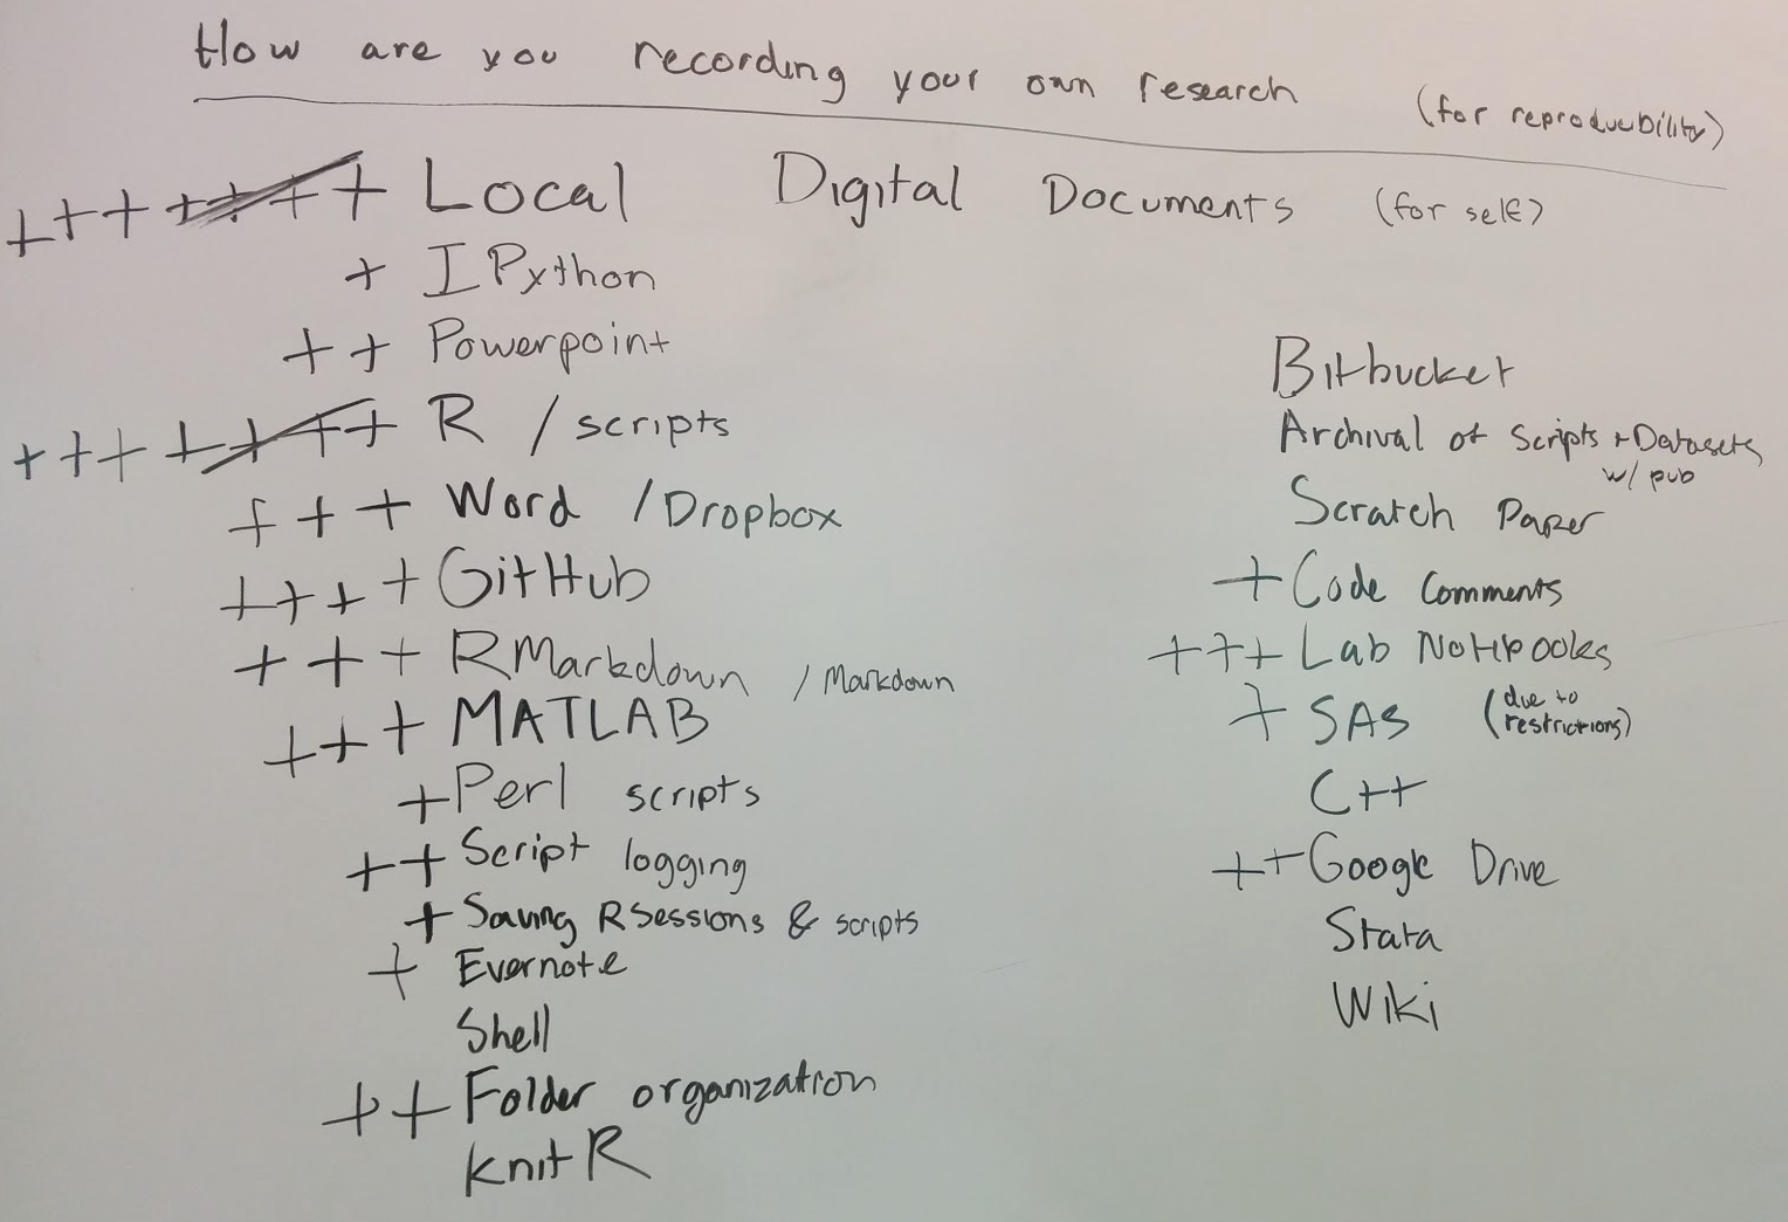 How are you recording your own research (for reproducibility)
+++++++ Local Digital Documents (for self)
+ IPython
++ Powerpoint
+++++++ R / scripts
+++ Word / Dropbox
++++ GitHub
+++ RMarkdown / Markdown
+++ MATLAB
+ Perl scripts
++ Script logging
+ Saving R Sessions & scripts
+ Evernote
Shell
++ Folder organization
knitR
Bitbucket
Archival of Scripts + Datasets
w/ pub
Scratch Paper
+ Code Comments
+++ Lab Notebooks
+ SAS (due to
restrictions)
C++
++ Google Drive
Stata
Wiki